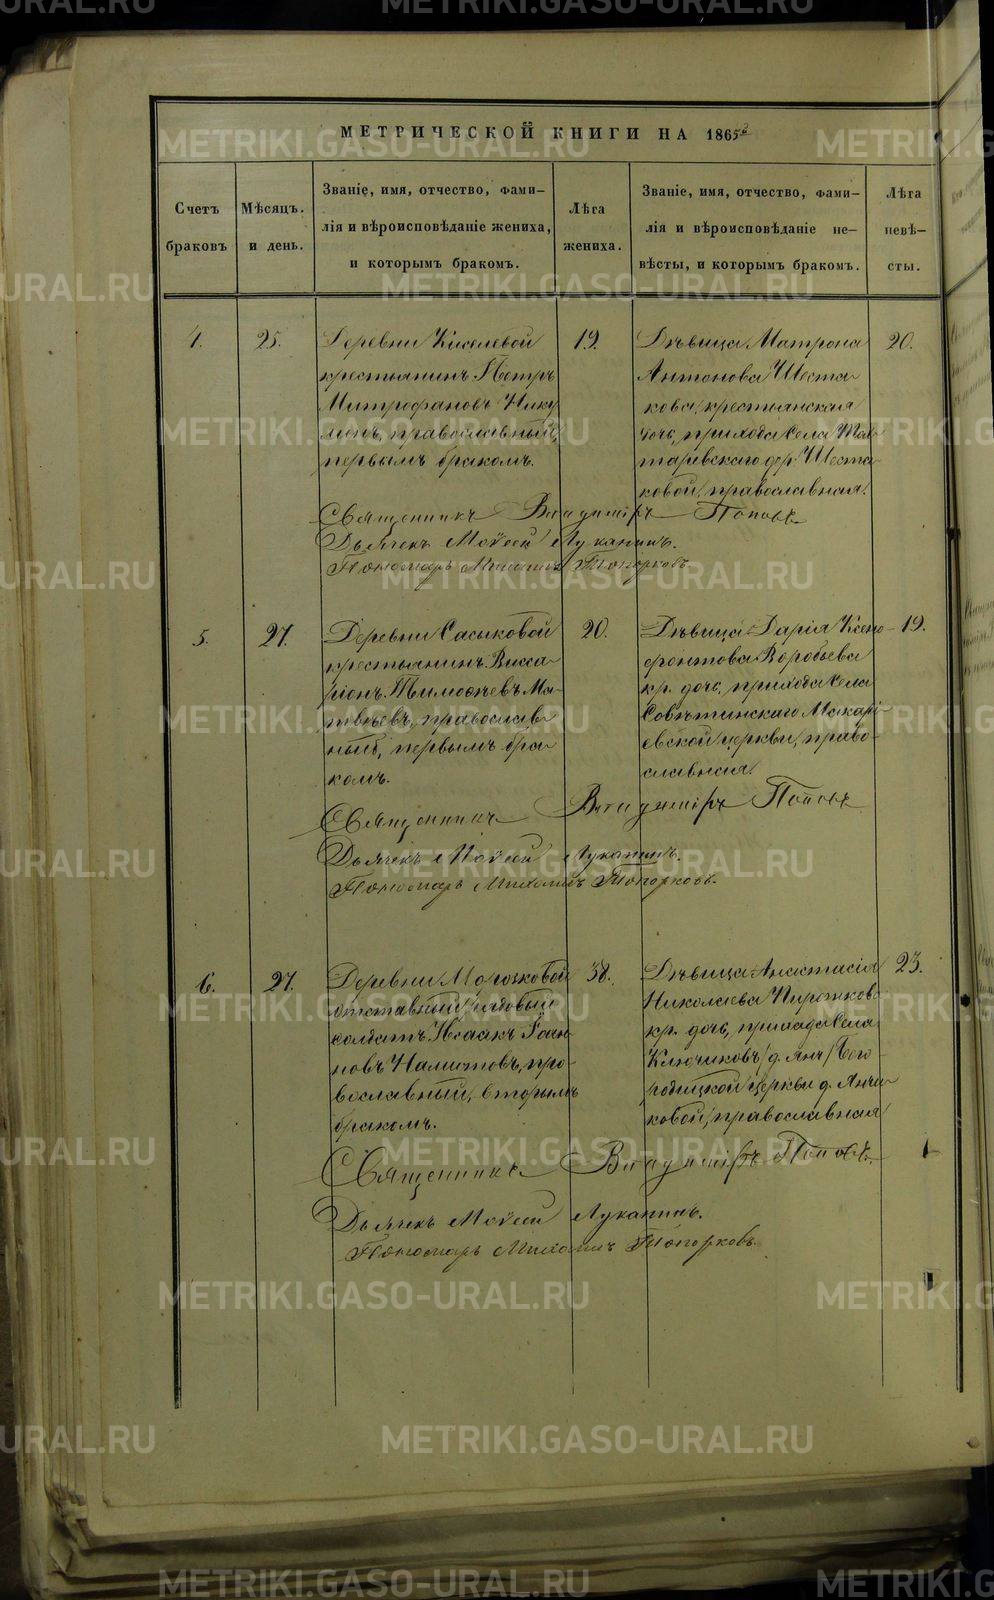 МЕТРИЧЕСКОЙ КНИГИ НА 1865й
Счетъ браковъ
Мѣсяцъ. и день.
Званіе, имя, отчество, фами-
лія и вѣроисповѣданіе жениха,
и которымъ бракомъ.
Лѣта
жениха.
Званіе, имя, отчество, фами-
лія и вѣроисповѣданіе не-
вѣсты, и которымъ бракомъ.
Лѣта
невѣ-
сты.
4.
25.
Деревни Киселевой
крестьянинъ Петръ
Митрофановъ Нику
линъ, православный,
первымъ бракомъ.
19.
Дѣвица Матрона
Антонова Шеста-
кова, крестьянская
дочь, прихода села
дер. Шеста-
ковой, православная.
20.
Священникъ Владиміръ Поповъ
Дьячекъ Моѵсей Луканинъ.
Пономарь Михаилъ Топорковъ
5.
27.
Деревни Сасыковой
крестьянинъ Висса-
ріонъ Тимоѳеевъ Ма-
твѣевъ, православ-
ный, первымъ бра-
комъ.
20.
Дѣвица Дарія Ксено-
фонтова Воробьева
кр. дочь, прихода села
Совѣтинскаго Макарі-
евской церкви, право-
славная.
19.
Священникъ Владиміръ Поповъ
Дьячекъ Моѵсей Луканинъ.
Пономарь Михаилъ Топорковъ.
6.
27.
Деревни Морозковой
отставный рядовый
солдатъ Исаакъ
православный, вторымъ
бракомъ.
38.
Дѣвица Анастасія
Николаева
кр. дочь, прихода села
Ключиковъ Бого-
родицкой церкви д.
ковой, православная
23.
Священникъ Владиміръ Поповъ.
Дьячекъ Моѵсей Луканинъ.
Пономарь Михаилъ Топорковъ.
METRIKI.GASO-URAL.RU